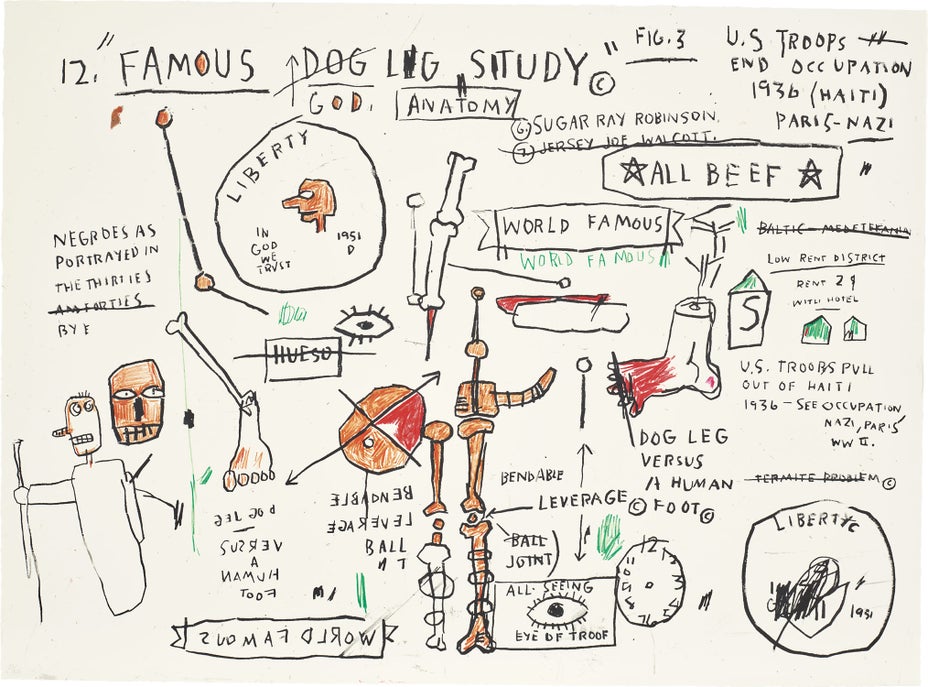 12. "FAMOUS DOG LEG STUDY" ©
GOD.
ANATOMY
FIG. 3
U.S TROOPS
END OCCUPATION
1936 (HAITI)
PARIS-NAZI
6) SUGAR RAY ROBINSON
7) JERSEY JOE WALCOTT.
ALL BEEF
LIBERTY
IN
GOD
WE
TRUST
1951
D
WORLD FAMOUS
WORLD FAMOUS
NEGROES AS
PORTRAYED IN
THE THIRTIES
AM FORTIES
BY E
HUESO
LOW RENT DISTRICT
RENT 2 $
WITH HOTEL
S
U.S. TROOBS PULL
OUT OF HAITI
1936 - SEE OCCUPATION
NAZI, PARIS
WW II.
TERMITE PROBLEM ©
DOG LEG
VERSUS
A HUMAN
© FOOT ©
BENDABLE
LEVERAGE
BALL
JOINT)
BENDABLE
LEVERAGE
BALL
N T
DOG LEG
VERSUS
A
HUMAN
FOOT
ALL SEEING
EYE OF TROOF
12
LIBERTY ©
1951
WORLD FAMOUS